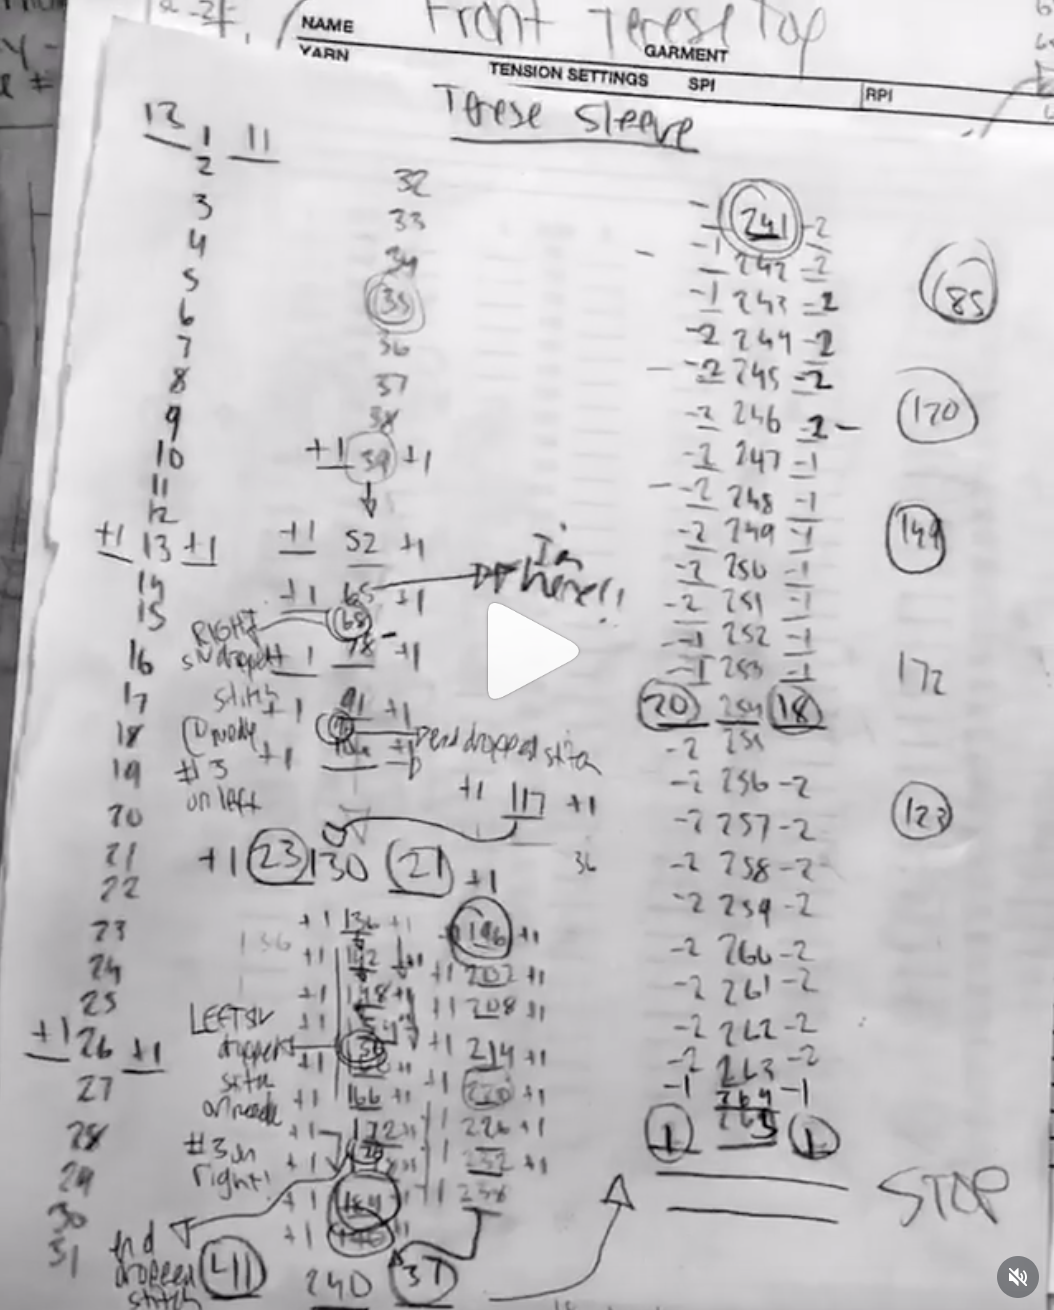 Front Terese Top
NAME
GARMENT
YARN
TENSION SETTINGS SPI
RPI
Terese Sleeve
13 1 11
2
3
4
5
6
7
8
9
10
11
12
+1 13 +1
14
15
16
17
18
19
20
21
22
23
24
25
+1 26 +1
27
28
29
30
31
32
33
34
35
36
37
38
+1 39 +1
+1 52 +1
+1 65 +1
I'm
here!!
68
78 +1
RIGHT
dropped
stitch
@ needle
#3
on left
+1 91 +1
+1 104 +1
end dropped stitch
+1 117 +1
+1 23 130 21 +1
36
136
+1 136 +1
+1 142 +1
+1 148 +1
LEFT
dropped
on needle
#3 on
right!
+1 166 +1
+1 172
+1 184
end
dropped
stitch
196 +1
+1 202 +1
+1 208 +1
+1 214 +1
+1 220 +1
226 +1
232 +1
+1 238
41 240 37
-1 241 -2
-1 242 -2
-1 243 -2
-2 244 -2
-2 245 -2
-2 246 -2
-2 247 -1
-2 248 -1
-2 249 -1
-2 250 -1
-2 251 -1
-1 252 -1
-1 253 -1
20 254 18
-2 255
-2 256 -2
-2 257 -2
-2 258 -2
-2 259 -2
-2 260 -2
-2 261 -2
-2 262 -2
-2 263 -2
-1 264 -1
1 265 1
STOP
85
170
149
172
123